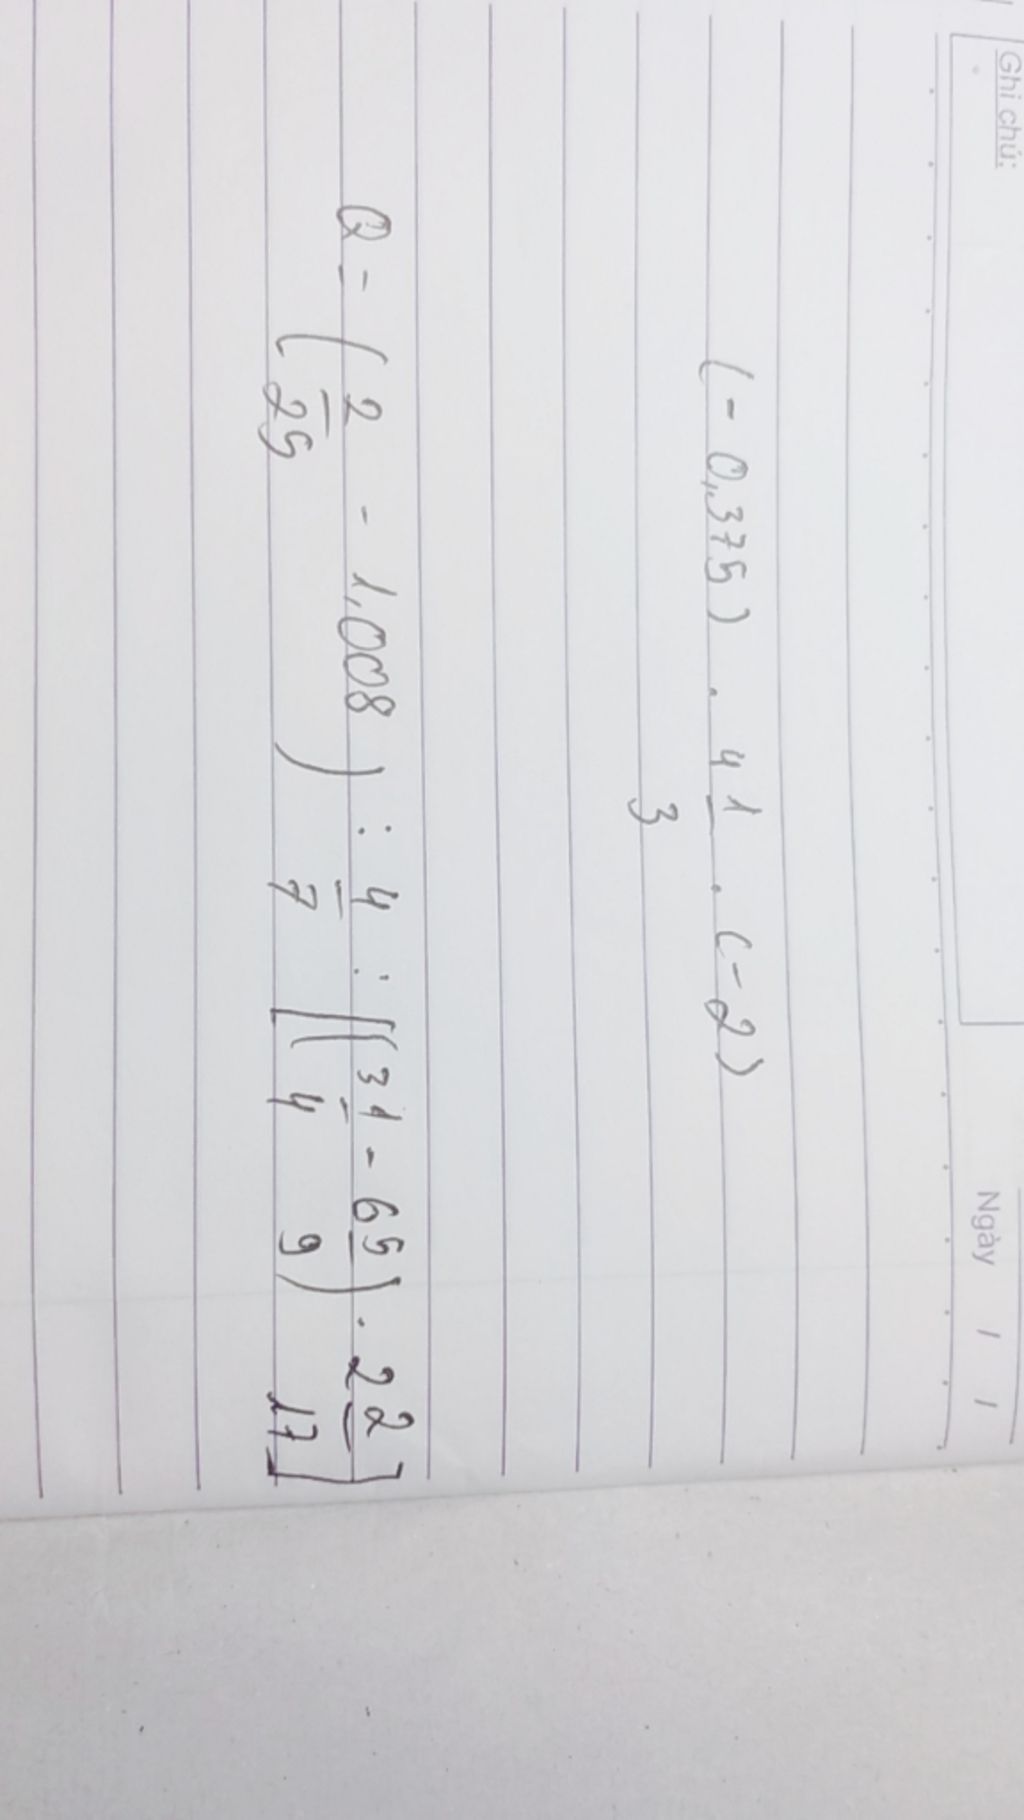 Ghi chú:
Ngày / /
(-0,375) . 4 1/3 . (-2)
Q = (2/25 - 1,008) : 4/7 : [(3 1/4 - 6 5/9) . 2 2/17]